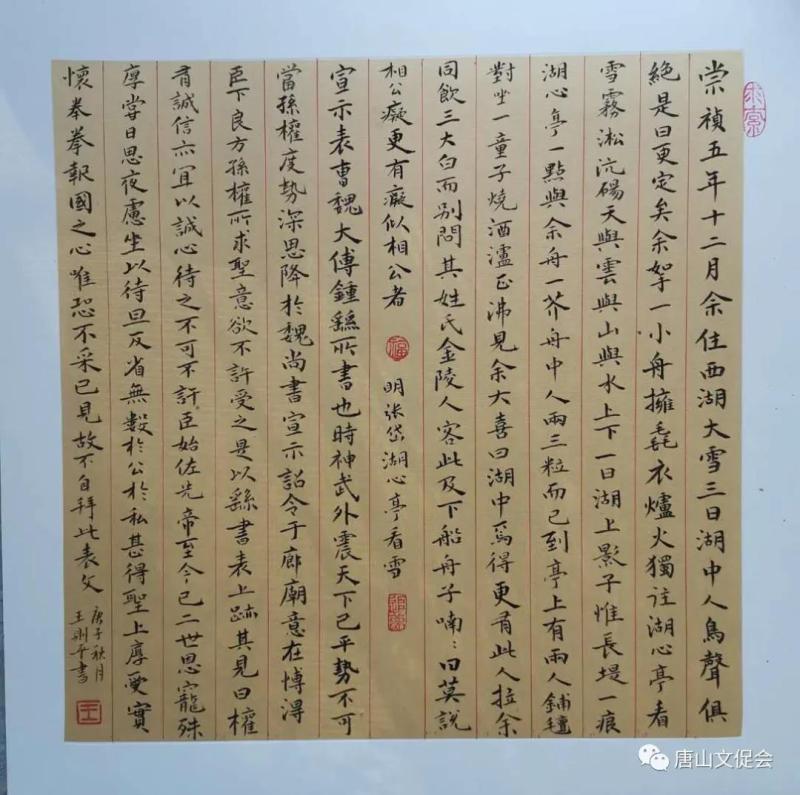 崇禎五年十二月余住西湖大雪三日湖中人鳥聲俱
絕是日更定矣余拏一小舟擁毳衣爐火獨往湖心亭看
雪霧淞沆碭天與雲與山與水上下一白湖上影子惟長堤一痕
湖心亭一點與余舟一芥舟中人兩三粒而已到亭上有兩人鋪氈
對坐一童子燒酒爐正沸見余大喜曰湖中焉得更有此人拉余
同飲三大白而別問其姓氏金陵人客此及下船舟子喃：曰莫說
相公癡更有癡似相公者 明张岱湖心亭看雪
宣示表曹魏大傅鍾繇所書也時神武外震天下已平勢不可
當孫權度勢深思降於魏尚書宣示詔令于廊廟意在博得
臣下良方孫權所求聖意欲不許受之是以繇書表上跡其見曰權
有誠信亦宜以誠心待之不可不許臣始佐先帝至今已二世思寵殊
厚當日思夜慮坐以待旦反省無數於公於私甚得聖上厚愛實
懷拳拳報國之心唯恐不采已見故不自拜此表文
庚子秋月
王
唐山文促会